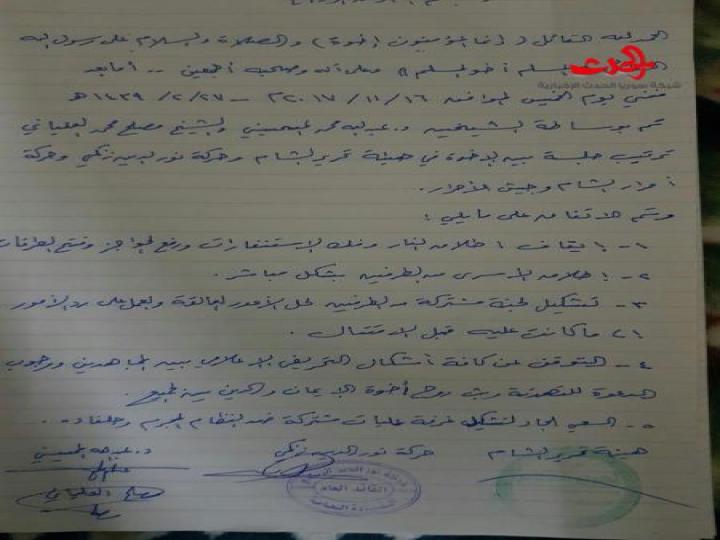 الحمد لله القائل (إنما المؤمنون إخوة) والصلاة والسلام على رسول الله
المسلم أخو المسلم)) وعلى آله وصحبه أجمعين .. أما بعد
الحدث
شبكة سوريا الحدث الإخبارية
ففي يوم الخميس الموافق ١٦ / ١١ / ٢٠١٧ - ٢٧ / ٢ / ١٤٣٩ هـ
تم بوساطة الشيخين د. عبد الله محمد المحيسني والشيخ مصلح محمد العلياني
ترتيب جلسة بين الإخوة في هيئة تحرير الشام وحركة نور الدين زنكي وحركة
أحرار الشام وجيش الأحرار.
وتم الاتفاق على ما يلي :
١- إيقاف إطلاق النار وفك الاستنفارات ورفع الحواجز وفتح الطرقات
٢- إطلاق الأسرى من الطرفين بشكل مباشر .
٣- تشكيل لجنة مشتركة من الطرفين لحل الأمور العالقة والعمل على رد الأمور
إلى ما كانت عليه قبل الاقتتال .
٤- التوقف عن كافة أشكال التحريض الإعلامي بين المجاهدين ووجوب
الدعوة للتهدئة وبث روح أخوة الإيمان والدين بين الجميع.
٥- السعي الجاد لتشكيل غرفة عمليات مشتركة ضد النظام المجرم وحلفاؤه .
هيئة تحرير الشام حركة نور الدين زنكي د. عبد الله المحيسني
القائد العام
مصلح العلياني